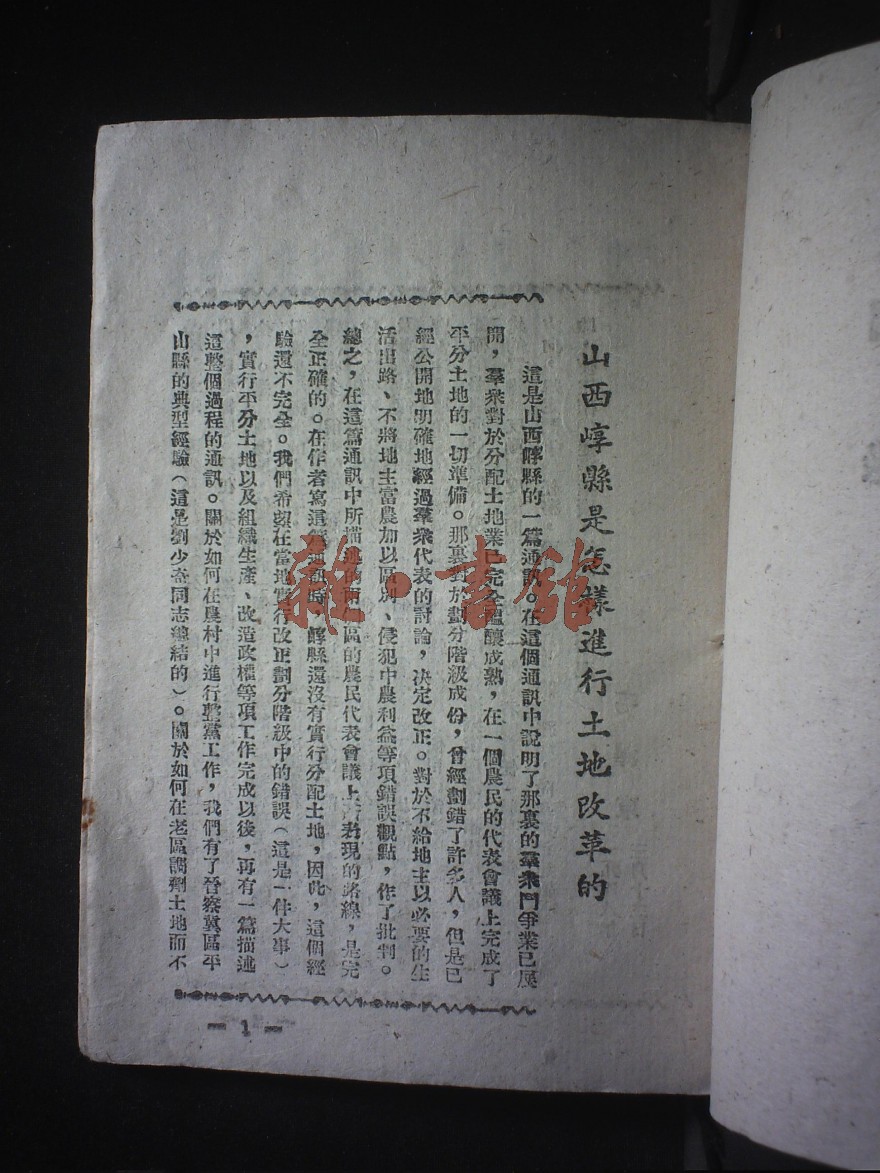 山西崞縣是怎樣進行土地改革的
這是山西崞縣的一篇通訊。在這個通訊中說明了那裏的羣衆鬥爭業已展
開，羣衆對於分配土地業已完全醞釀成熟，在一個農民的代表會議上完成了
平分土地的一切準備。那裏對於劃分階級成份，曾經劃錯了許多人，但是已
經公開地明確地經過羣衆代表的討論，决定改正。對於不給地主以必要的生
活出路、不將地主富農加以區別、侵犯中農利益等項錯誤觀點，作了批判。
總之，在這篇通訊中所描述的兩個區的農民代表會議上所表現的路線，是完
全正確的。在作者寫這篇通訊時，崞縣還沒有實行分配土地，因此，這個經
驗還不完全。我們希望在當地實行改正劃分階級中的錯誤（這是一件大事）
，實行平分土地以及組織生產、改造政權等項工作完成以後，再有一篇描述
這整個過程的通訊。關於如何在農村中進行整黨工作，我們有了晉察冀區平
山縣的典型經驗（這是劉少奇同志總結的）。關於如何在老區調劑土地而不
— 1 —
雜·書館